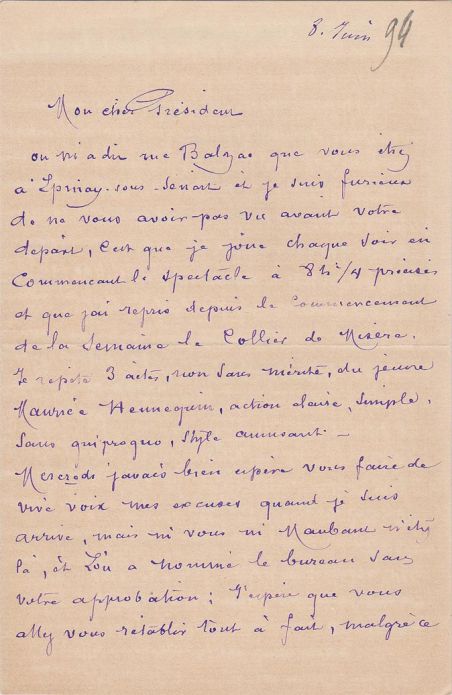 8. Juin 94
Mon cher Président
on m'a dit rue Balzac que vous étiez
à Epinay-sous-Senart et je suis furieux
de ne vous avoir pas vu avant votre
départ, c'est que je joue chaque soir en
commencant le spectacle à 8h 1/4 précises
et que j'ai repris depuis le commencement
de la semaine le Collier de Misère.
Je repète 3 actes, non sans mérite, du jeune
Maurice Hennequin, action claire, simple,
sans quiproquo, style amusant —
Mercredi j'avais bien espéré vous faire de
vive voix mes excuses quand je suis
arrivé, mais ni vous ni Maubant n'étiez
là, et l'on a nommé le bureau sans
votre approbation ; J'espère que vous
allez vous rétablir tout à fait, malgré ce